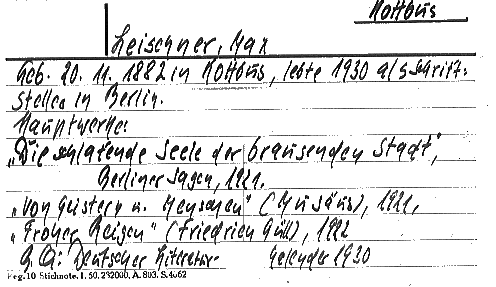 Kottbus
Leischner, Max
Geb. 20. 11. 1882 in Kottbus, lebte 1930 als Schrift-
steller in Berlin.
Hauptwerke:
„Die schlafende Seele der brausenden Stadt",
Berliner Sagen, 1921.
„Von Geistern u. Menschen" (Musäus), 1921,
„Froher Reigen" (Friedrich Güll), 1922
Qu: Deutscher Literatur- Kalender 1930
Reg. 10 Stichnote. I. 50, 232000. A. 803. S. 4062